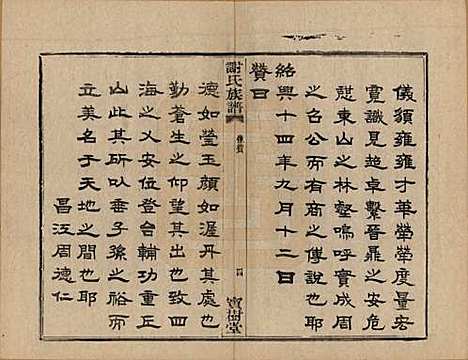 儀鬚雍雍才華犖犖度量宏
寬識見超卓繫晉鼎之安危
慰東山之林壑嗚呼實成周
之召公而有商之傅說也耶
紹興十四年九月十二日
贊曰
謝氏族譜
像贊
四
寶樹堂
德如瑩玉顏如渥丹其處也
勤蒼生之仰望其出也致四
海之乂安位登台輔功重丘
山此其所以垂子孫之裕而
立美名于天地之間也耶
昌江周德仁